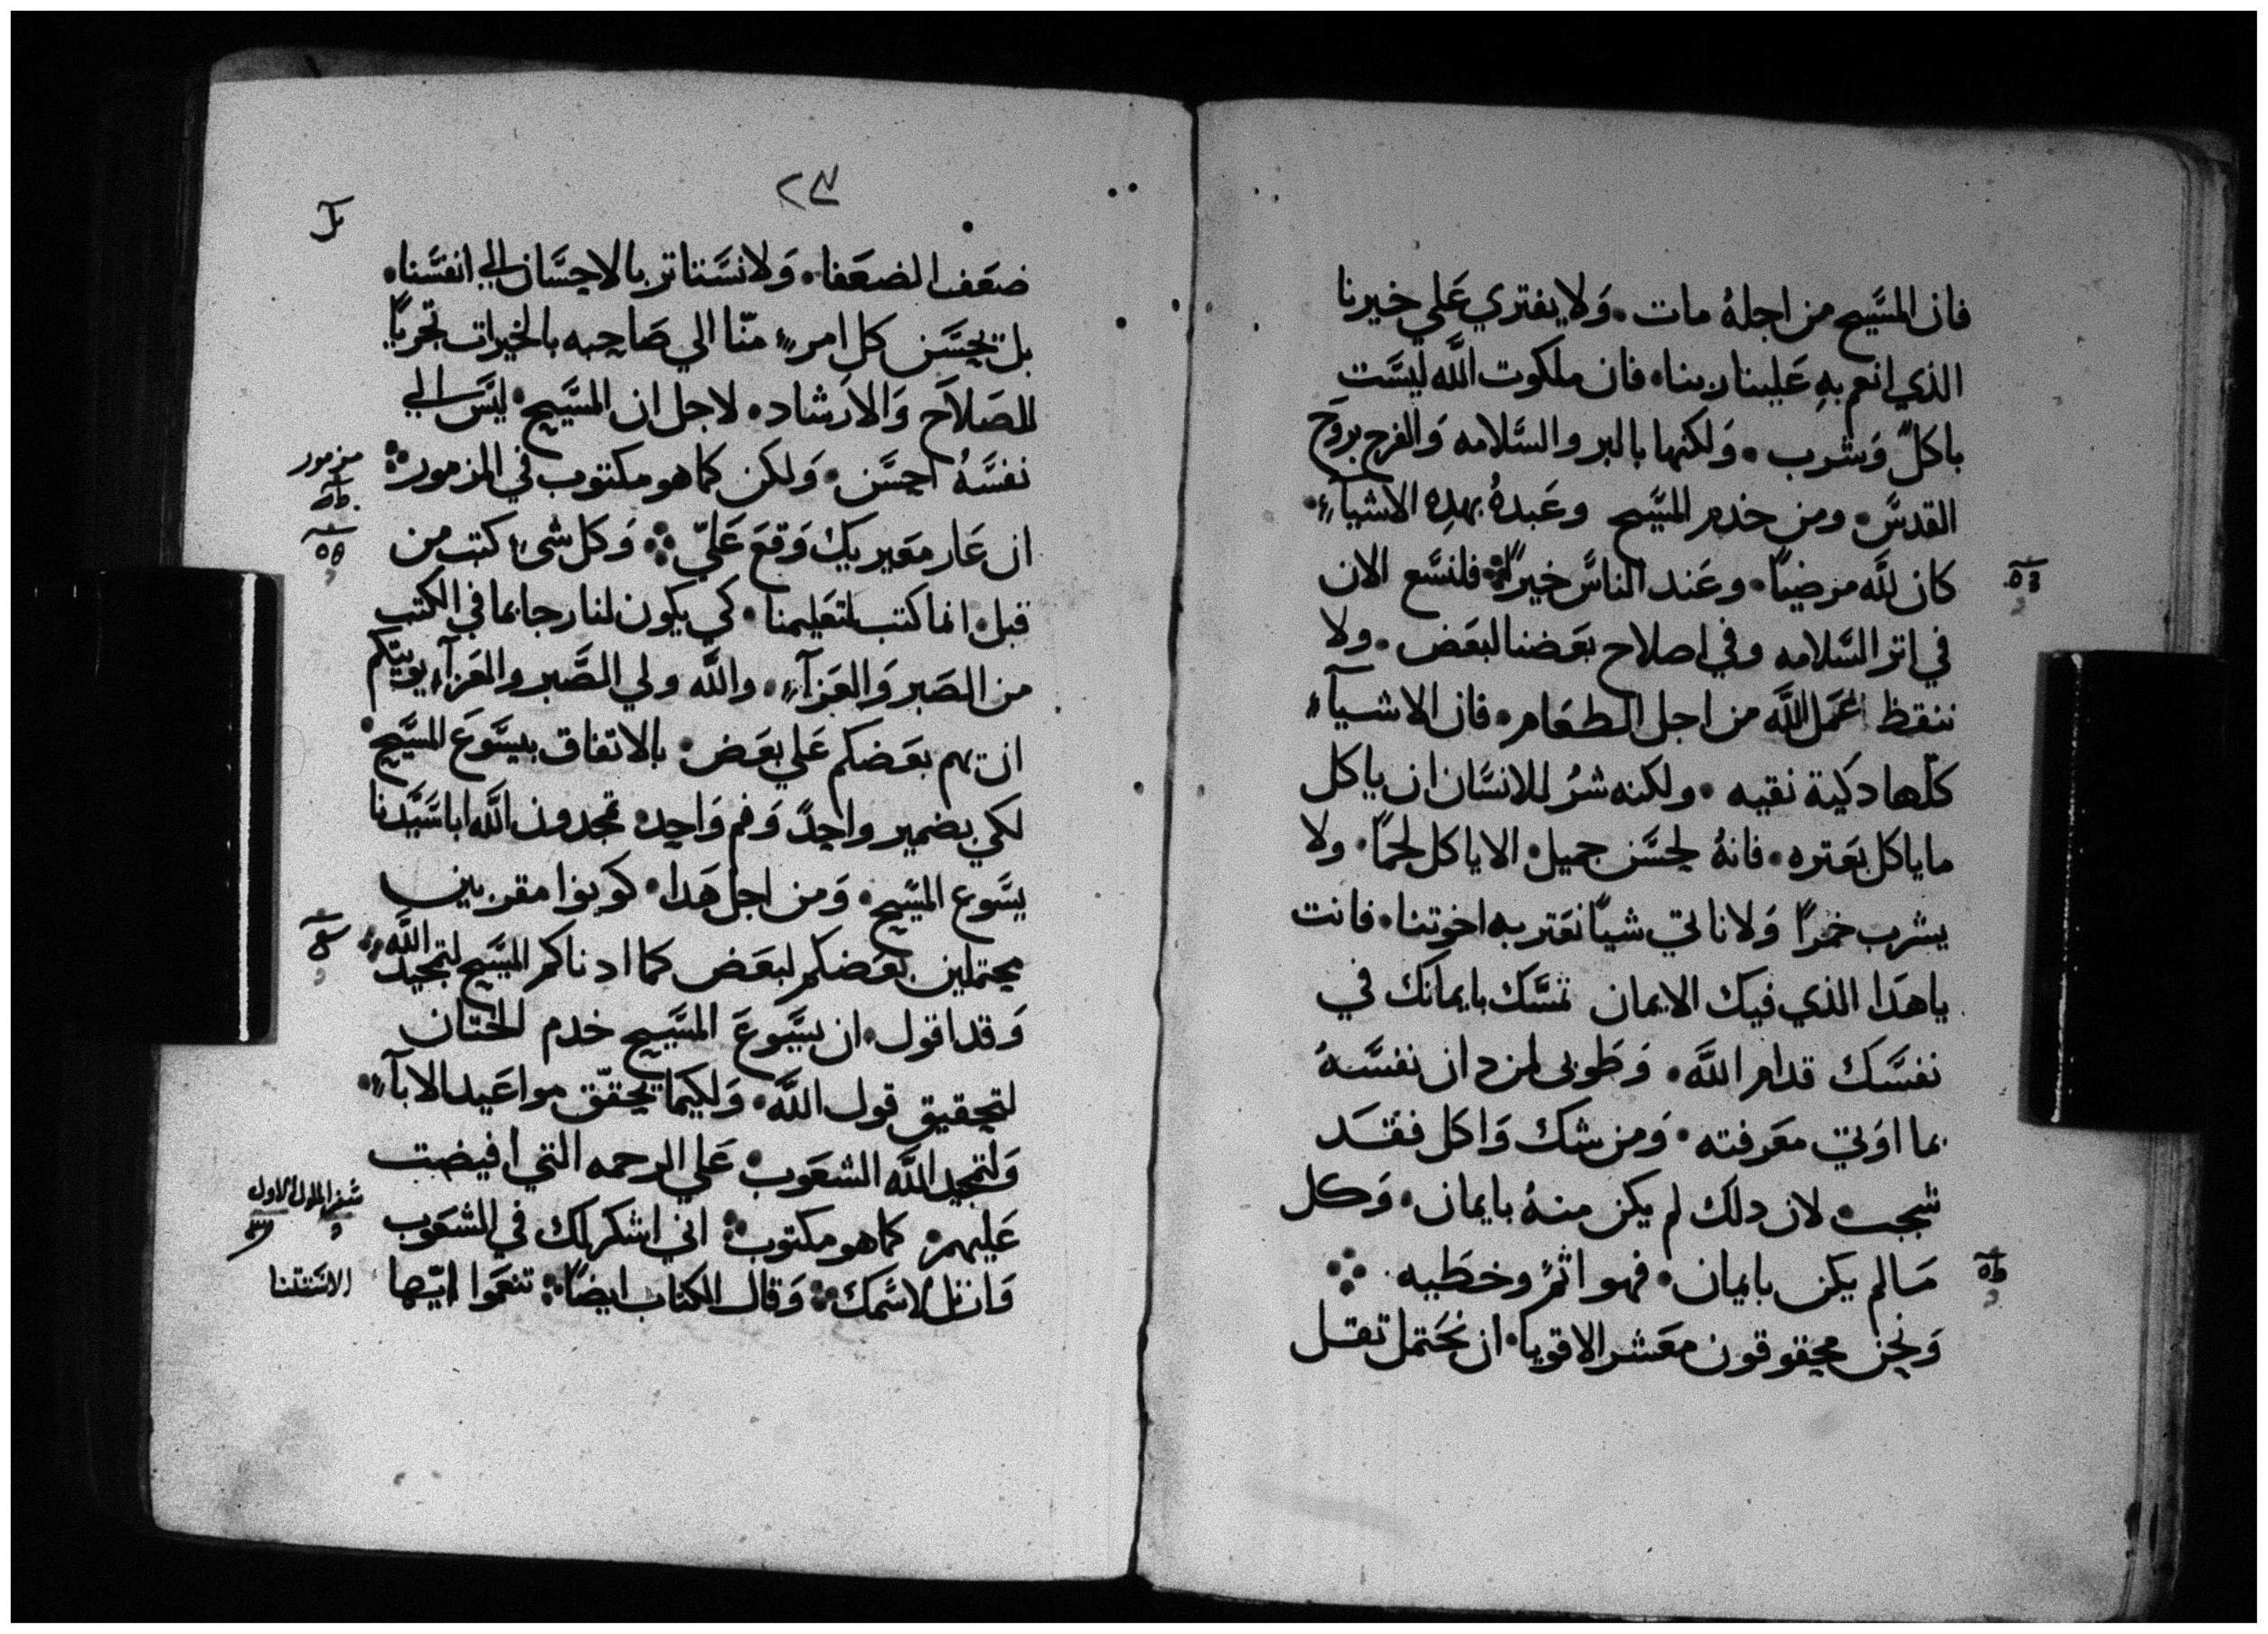 فان المسيح من اجلهُ مات. وَلا يفتري عَلي خيرنا
الذي انعم بهِ عَلينا ربنا. فان ملكوت اللَّه ليسَت
باكلٍ وَشرب. وَلكنها بالبر والسَّلامه وَالفرح بروح
القدسَ. ومن خدم المسَيح وعَبدهُ بهدِه الاشيآءِ.
كان للَّه مرضيًا. وعَند الناسَ خيرًا ⁘ فلنسَع الان
في اتر السَّلامه وفي اصلاح بعَضنا لبعَض. ولا
ننقظ عَمل اللَّه من اجل الطعَام. فان الاشيآء
كلّها دكية نقيه. ولكنه شرُ للانسَان ان ياكل
ما ياكل بعَتره. فانهُ لحسَن جميل. الا ياكل لحمًا. ولا
يشرب خمرًا وَلا ناتي شيًا نعَتر به اخوتنا. فانت
ياهدَا الذي فيك الايمان تمسَّك بايمانك في
نفسَك قدام اللَّه. وَطوبى لمن دان نفسَهُ
بما اوَتي معَرفته. وَمن شك وَاكل فقَد
شجب. لان دلك لم يكن منهُ بايمان. وَكل
مَا لم يكن بايمان. فهو اثمٌ وخطَيه ⁘
وَنحن محقوقون معَشر الاقويا. ان نحَتمل تقل
٥٣
٥ط
٢٣
ضعَف الضعَفا. وَلا نسَتاتر بالاحسَان الي انفسَنا.
بل يحسَن كل امرءٍ منّا الي صَاحبه بالخيرات تحريًا
للصَلاَح وَالارَشاد. لاجل ان المسَيح. ليسَ الي
نفسَهُ احسَن. وَلكن كما هو مكتوب في المزمور ⁘
ان عَار معَيريك وَقعَ عَليّ ⁘ وَكل شىءٍ كتب من
قبل. انما كتب لتعَليمنا. كي يكون لنا رجا بما في الكتب
من الصَبر وَالعَزآءِ. واللَّه ولي الصَّبر والعَزآءِ يوتيكم
ان تهم بعَضكم عَلي بعَض. بالاتفاق بيسَوعَ المسَيح.
لكي بضمير واحدً وَفم وَاحِد. تمجدون اللَّه ابا سَيدنا
يسَوع المسَيح. وَمن اجل هَدا. كونوا مقربين
محتملين بعَضكم لبعَض كما ادناكم المسَيح لتمجيد اللَّه ⁘
وَقد اقول. ان يسَوعَ المسَيح خدم الختان
لتحقيق قول اللَّه. وَلكيما يحقّق مواعَيد الابآءِ.
وَلتمجيد اللَّه الشعَوب. عَلي الرحمه التي افيضت
عَليهم. كما هو مكتوب ⁘ اني اشكر لك في الشعَوب
وَارتل لاسَمك ⁘ وَقال الكتاب ايضًا ⁘ تنعَموا ايّها
مزمور
سَفر الملوك الاول